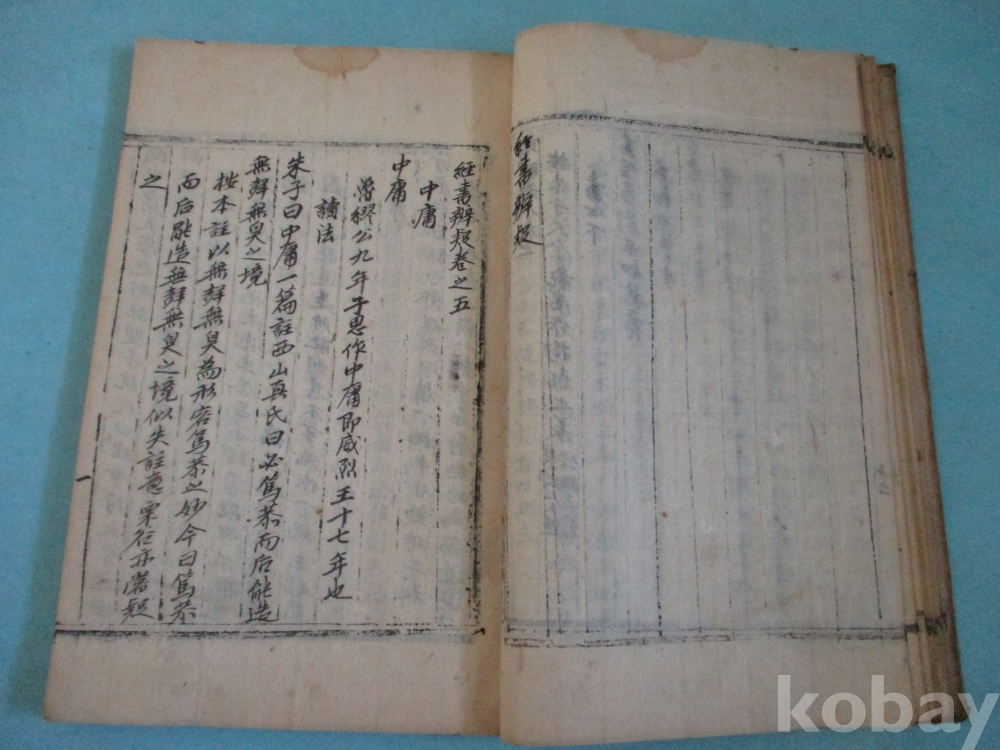 經書辨疑
經書辨疑卷之五
中庸
中庸
魯繆公九年子思作中庸即威烈王十七年也
讀法
朱子曰中庸一篇註西山真氏曰必篤恭而后能造
無聲無臭之境
按本註以無聲無臭為形容篤恭之妙今曰篤恭
而后能造無聲無臭之境似失註意栗谷亦嘗疑
之
一
kobay